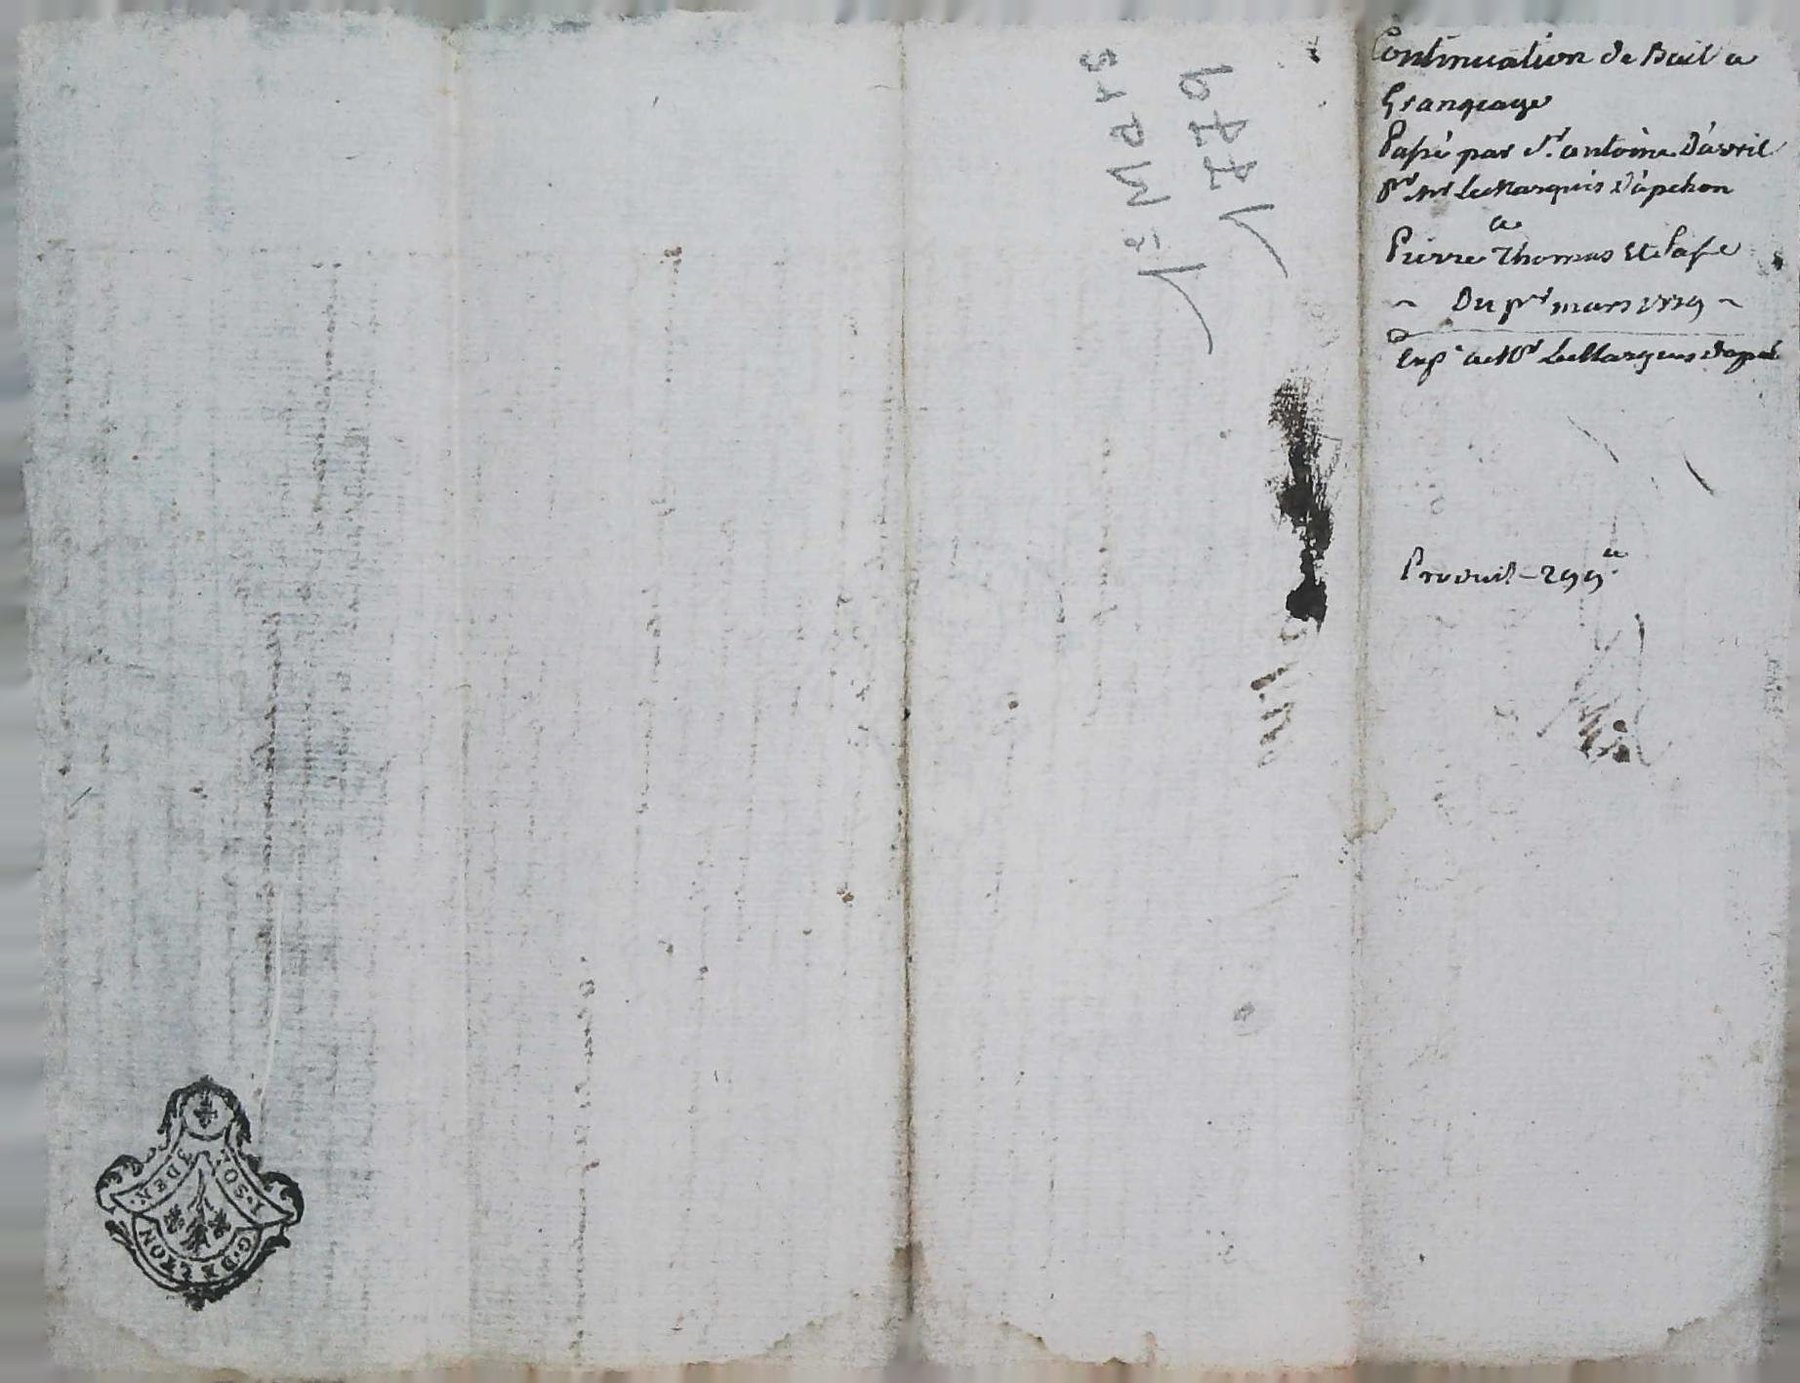 Continuation de Bail a
Grangeage
Passé par Sr. antoine Davril
pr Mr Le Marquis D'apchon
a
Pierre Thomas Et sa fe
~ Du pr mars 1779 ~
Exp. a Mr Le Marquis Dapch
Produit - 299
1779
1er MARS
1. SOL. 3 DEN.
G. DE LYON